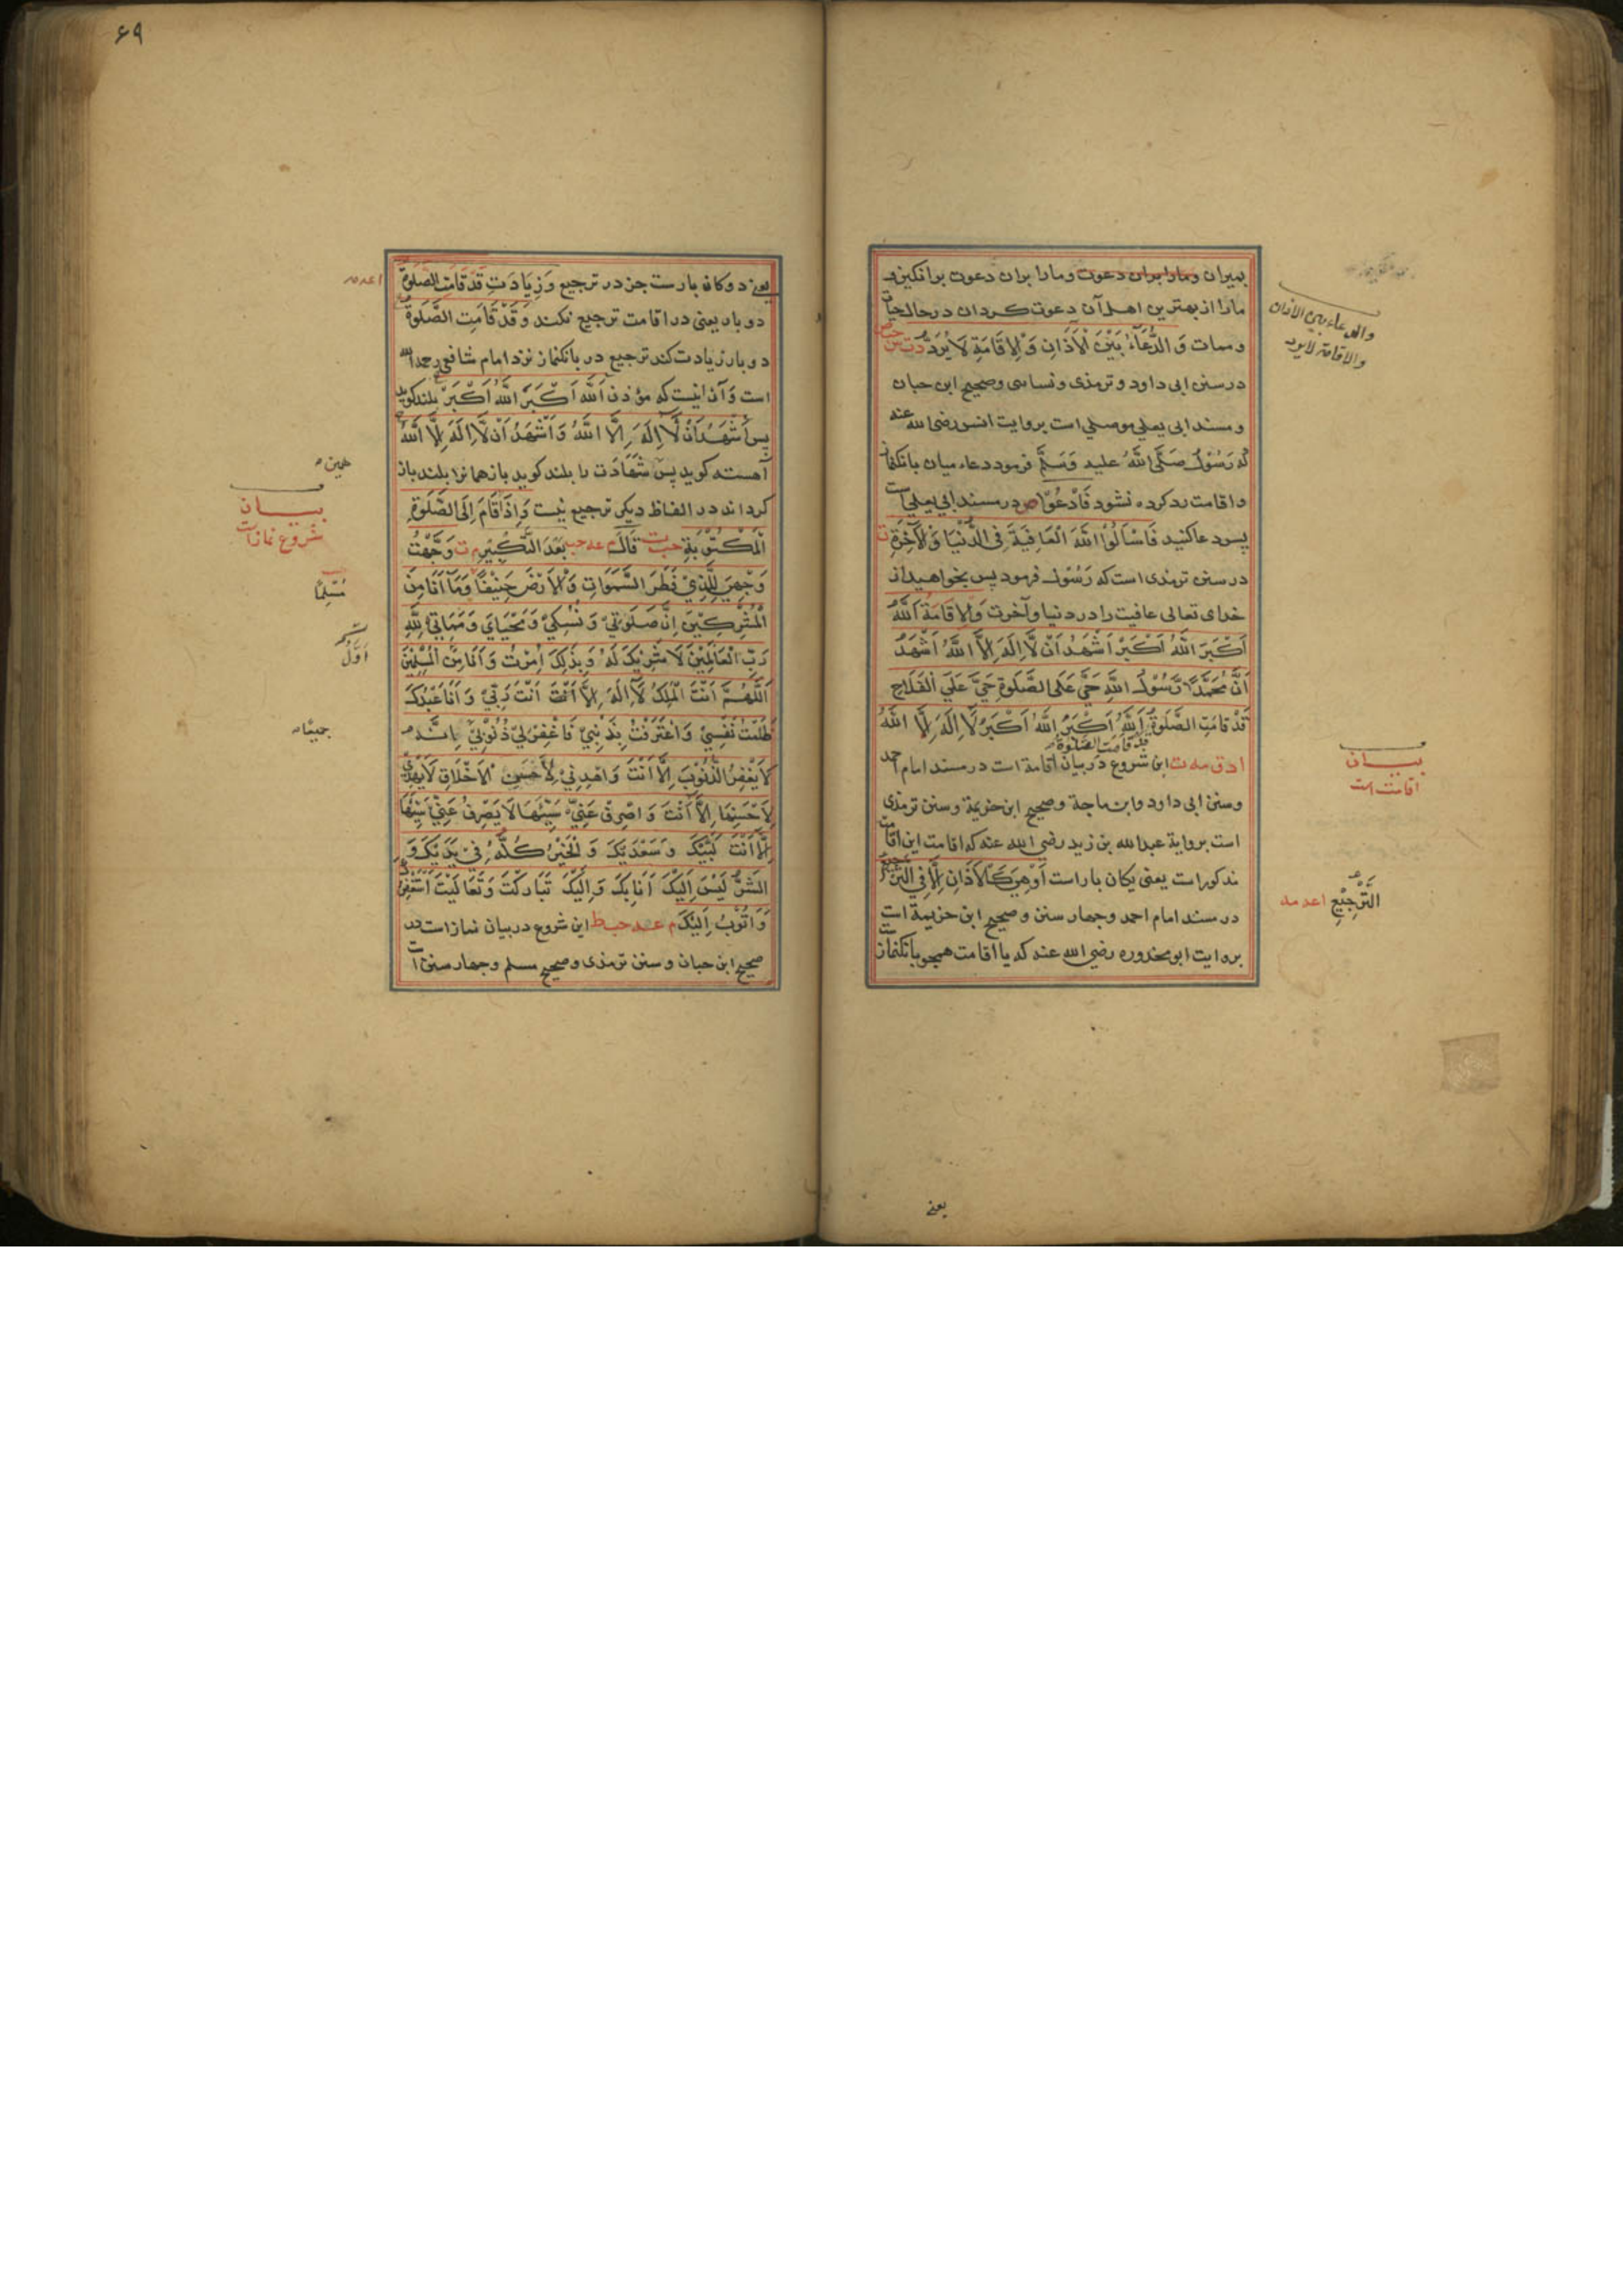 بمیران و مارا بران دعوت و مارا بران دعوت برانکیز و
مارا از بهترین اهل آن دعوت کردان در حال حیات
و ممات وَ الدُّعَآءُ بَیْنَ الْاَذَانِ وَ الْاِقَامَةِ لَا یُرَدُّ د ت س حب ص
در سنن ابی داود و ترمذی و نسائی و صحیح ابن حبان
و مسند ابی یعلی موصلی است بروایت انس رضی الله عنه
که رَسُوْل صَلَّی اللّٰهُ علیه وَسَلَّم فرمود دعاء میان بانکنماز
و اقامت رد کرده نشود فَادْعُوْا ص در مسند ابی یعلی است
پس دعا کنید فَاسْاَلُوْا اللّٰهَ الْعَافِیَةَ فِی الدُّنْیَا وَ الْاٰخِرَةِ ت
در سنن ترمذی است که رَسُوْل فرمود پس بخواهید از
خدای تعالی عافیت را در دنیا و آخرت وَالْاِقَامَةُ اَللّٰهُ
اَکْبَرُ اَللّٰهُ اَکْبَرُ اَشْهَدُ اَنْ لَّا اِلٰهَ اِلَّا اللّٰهُ اَشْهَدُ
اَنَّ مُحَمَّدًا رَّسُوْلُ اللّٰهِ حَیَّ عَلَی الصَّلٰوةِ حَیَّ عَلَی الْفَلَاحِ
قَدْ قَامَتِ الصَّلٰوةُ اَللّٰهُ اَکْبَرُ اَللّٰهُ اَکْبَرُ لَا اِلٰهَ اِلَّا اللّٰهُ
قد قامت الصلوة
ا د ق مه ت این شروع در بیان اقامة است در مسند امام احمد
و سنن ابی داود و ابن ماجة و صحیح ابن خزیمة و سنن ترمذی
است بروایة عبدالله بن زید رضی الله عنه که اقامت این اقامت
مذکور است یعنی یکان بار است اَوْ هِیَ کَالْاَذَانِ اِلَّا فِی التَّرْجِیْعِ
در مسند امام احمد و چهار سنن و صحیح ابن خزیمة است
بروایت ابو محذوره رضی الله عنه که یا اقامت همچو بانکنماز
یعنے
والدعاء بین الاذان
والاقامة لا یرد
بیــان
اقامت است
التَّرْجِیْعِ اعه مه
۶۹
یعنے دوکانه بار است جز در ترجیع وَ زِیَادَتِ قَدْ قَامَتِ الصَّلٰوةُ
دو بار یعنی در اقامت ترجیع نکند وَ قَدْ قَامَتِ الصَّلٰوةُ
دو بار زیادت کند ترجیع در بانکنماز نزد امام شافعی رحمه الله
است وَ آن اینست که مؤذن اَللّٰهُ اَکْبَرُ اَللّٰهُ اَکْبَرُ بلند کوید
پس اَشْهَدُ اَنْ لَّا اِلٰهَ اِلَّا اللّٰهُ وَ اَشْهَدُ اَنْ لَّا اِلٰهَ اِلَّا اللّٰهُ
آهسته کوید پس شَهَادَت را بلند کوید باز همانرا بلند باز
کرداند در الفاظ دیکر ترجیع نیست وَ اِذَا قَامَ اِلَی الصَّلٰوةِ
الْمَکْتُوْبَةِ حب ت قَالَ م عه حب بَعْدَ التَّکْبِیْرِ م ت وَجَّهْتُ
وَجْهِیَ لِلَّذِیْ فَطَرَ السَّمٰوَاتِ وَ الْاَرْضَ حَنِیْفًا وَّمَا اَنَا مِنَ
الْمُشْرِکِیْنَ اِنَّ صَلٰوتِیْ وَ نُسُکِیْ وَ مَحْیَایَ وَ مَمَاتِیْ لِلّٰهِ
رَبِّ الْعَالَمِیْنَ لَا شَرِیْکَ لَهُ وَ بِذٰلِکَ اُمِرْتُ وَ اَنَا مِنَ الْمُسْلِمِیْنَ
اَللّٰهُمَّ اَنْتَ الْمَلِکُ لَا اِلٰهَ اِلَّا اَنْتَ اَنْتَ رَبِّیْ وَ اَنَا عَبْدُکَ
ظَلَمْتُ نَفْسِیْ وَ اعْتَرَفْتُ بِذَنْبِیْ فَاغْفِرْ لِیْ ذُنُوْبِیْ اِنَّهُ
لَا یَغْفِرُ الذُّنُوْبَ اِلَّا اَنْتَ وَ اهْدِنِیْ لِاَحْسَنِ الْاَخْلَاقِ لَا یَهْدِیْ
لِاَحْسَنِهَا اِلَّا اَنْتَ وَ اصْرِفْ عَنِّیْ سَیِّئَهَا لَا یَصْرِفُ عَنِّیْ سَیِّئَهَا
اِلَّا اَنْتَ لَبَّیْکَ وَ سَعْدَیْکَ وَ الْخَیْرُ کُلُّهُ فِیْ یَدَیْکَ وَ
الشَّرُّ لَیْسَ اِلَیْکَ اَنَا بِکَ وَ اِلَیْکَ تَبَارَکْتَ وَ تَعَالَیْتَ اَسْتَغْفِرُکَ
وَ اَتُوْبُ اِلَیْکَ م عه حب ط این شروع در بیان نماز است در
صحیح ابن حبان و سنن ترمذی و صحیح مسلم و چهار سنن است
اعه مه
همین
بیــان
شروع نماز است
مُسْلِمًا
اَوَّلُ
جمیعًا